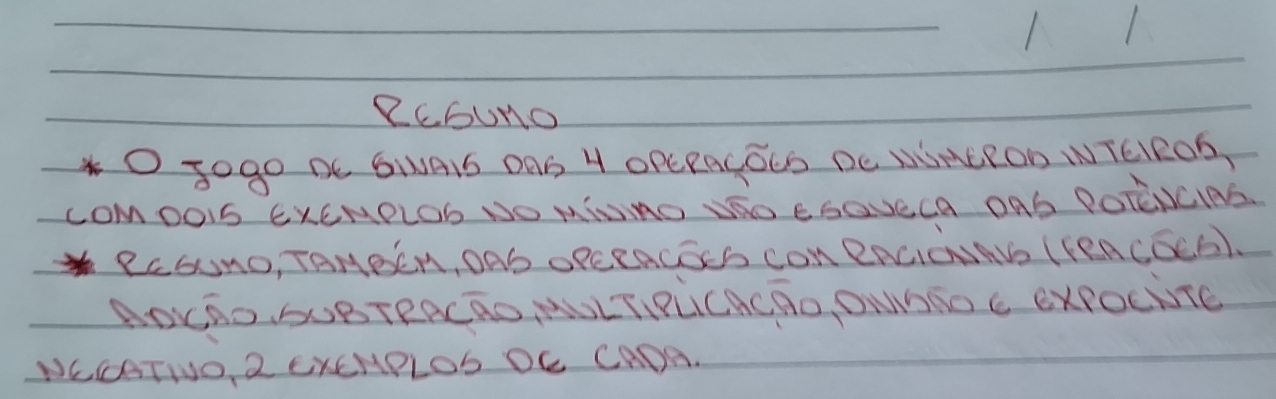 / /
RESUMO
* O JOGO DE SINAIS DAS 4 OPERAÇÕES DE NÚMEROS INTEIROS,
COM DOIS EXEMPLOS NO MÍNIMO NÃO ESQUEÇA DAS POTÊNCIAS.
* RESUMO, TAMBÉM, DAS OPERAÇÕES COM RACIONAIS (FRAÇÕES).
ADIÇÃO, SUBTRAÇÃO, MULTIPLICAÇÃO, DIVISÃO E EXPOENTE
NEGATIVO, 2 EXEMPLOS DE CADA.